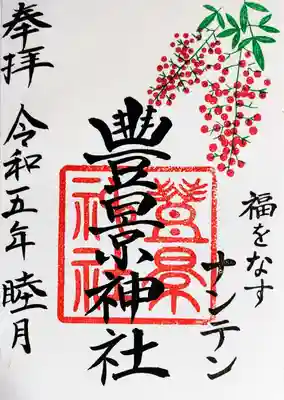 福をなす
ナンテン
豊景神社
豊景
神社
奉拝
令和五年
睦月